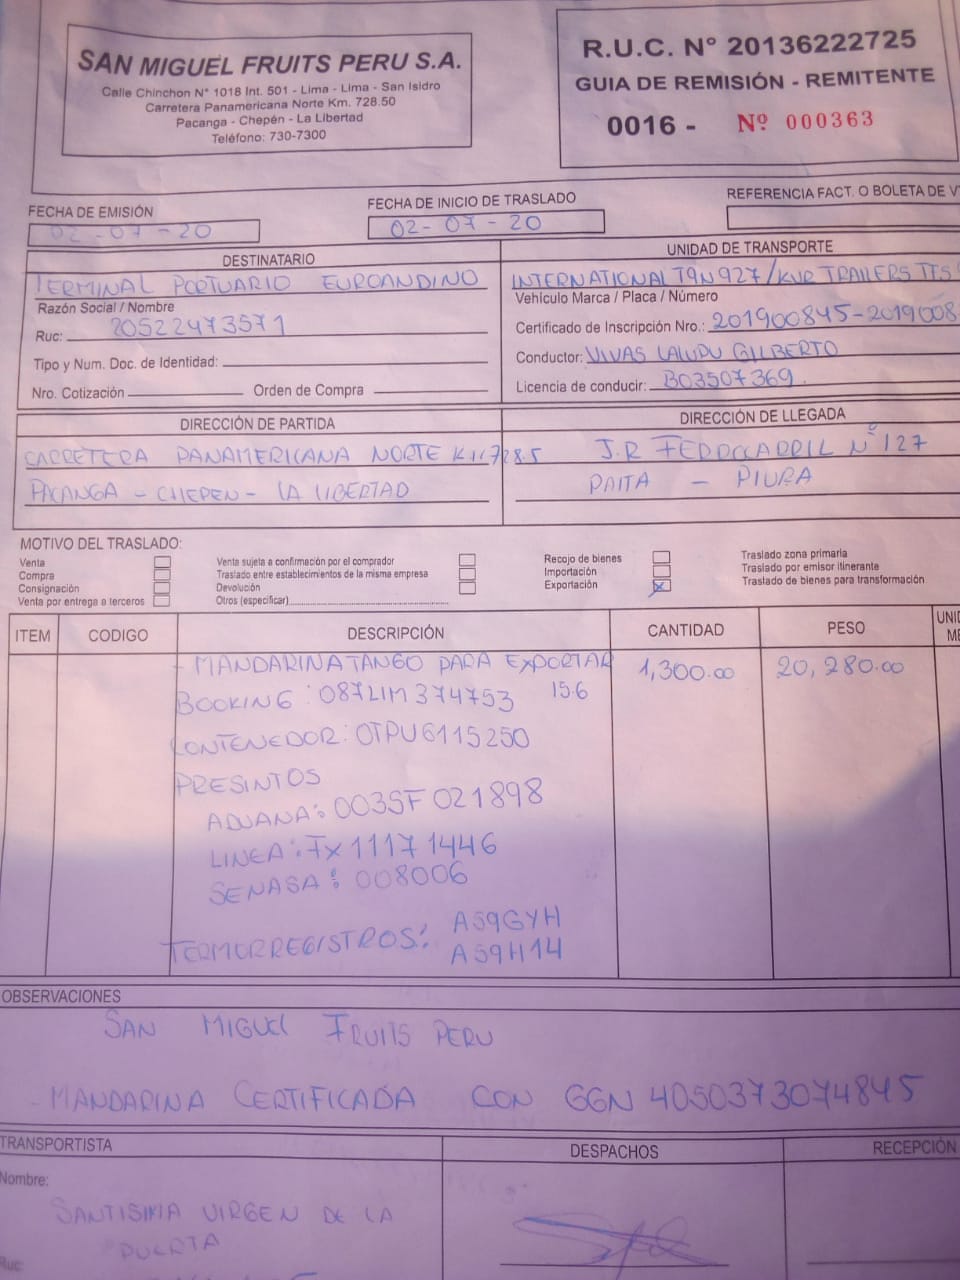 SAN MIGUEL FRUITS PERU S.A.
Calle Chinchon N° 1018 Int. 501 - Lima - Lima - San Isidro
Carretera Panamericana Norte Km. 728.50
Pacanga - Chepén - La Libertad
Teléfono: 730-7300
R.U.C. N° 20136222725
GUIA DE REMISIÓN - REMITENTE
0016 - Nº 000363
FECHA DE EMISIÓN
02-07-20
FECHA DE INICIO DE TRASLADO
02-07-20
REFERENCIA FACT. O BOLETA DE
DESTINATARIO
TERMINAL PORTUARIO EUROANDINO
Razón Social / Nombre
Ruc: 20522473571
Tipo y Num. Doc. de Identidad:
Nro. Cotización Orden de Compra
UNIDAD DE TRANSPORTE
INTERNATIONAL T9N927/KUR TRAILERS
Vehículo Marca / Placa / Número
Certificado de Inscripción Nro.: 201900845-2019008
Conductor: VIVAS GILBERTO
Licencia de conducir: B03507369
DIRECCIÓN DE PARTIDA
CARRETERA PANAMERICANA NORTE KM 728.5
PACANGA - CHEPEN - LA LIBERTAD
DIRECCIÓN DE LLEGADA
J.R FERROCARRIL N° 127
PAITA - PIURA
MOTIVO DEL TRASLADO:
Venta
Compra
Consignación
Venta por entrega a terceros
Venta sujeta a confirmación por el comprador
Traslado entre establecimientos de la misma empresa
Devolución
Otros (especificar)
Recojo de bienes
Importación
Exportación X
Traslado zona primaria
Traslado por emisor itinerante
Traslado de bienes para transformación
ITEM CODIGO DESCRIPCIÓN CANTIDAD PESO
- MANDARINA TANGO PARA EXPORTAR 1,300.00 20,280.00
BOOKING: 087LIM374753 15.6
CONTENEDOR: OTPU6115250
PRESINTOS
ADUANA: 003SF021898
LINEA: FX11171446
SENASA: 008006
TERMORREGISTROS: AS9GYH
AS9H14
OBSERVACIONES
SAN MIGUEL FRUITS PERU
- MANDARINA CERTIFICADA CON GGN 4050373074845
TRANSPORTISTA
Nombre:
SANTISIMA VIRGEN DE LA
PUERTA
Ruc:
DESPACHOS
RECEPCIÓN